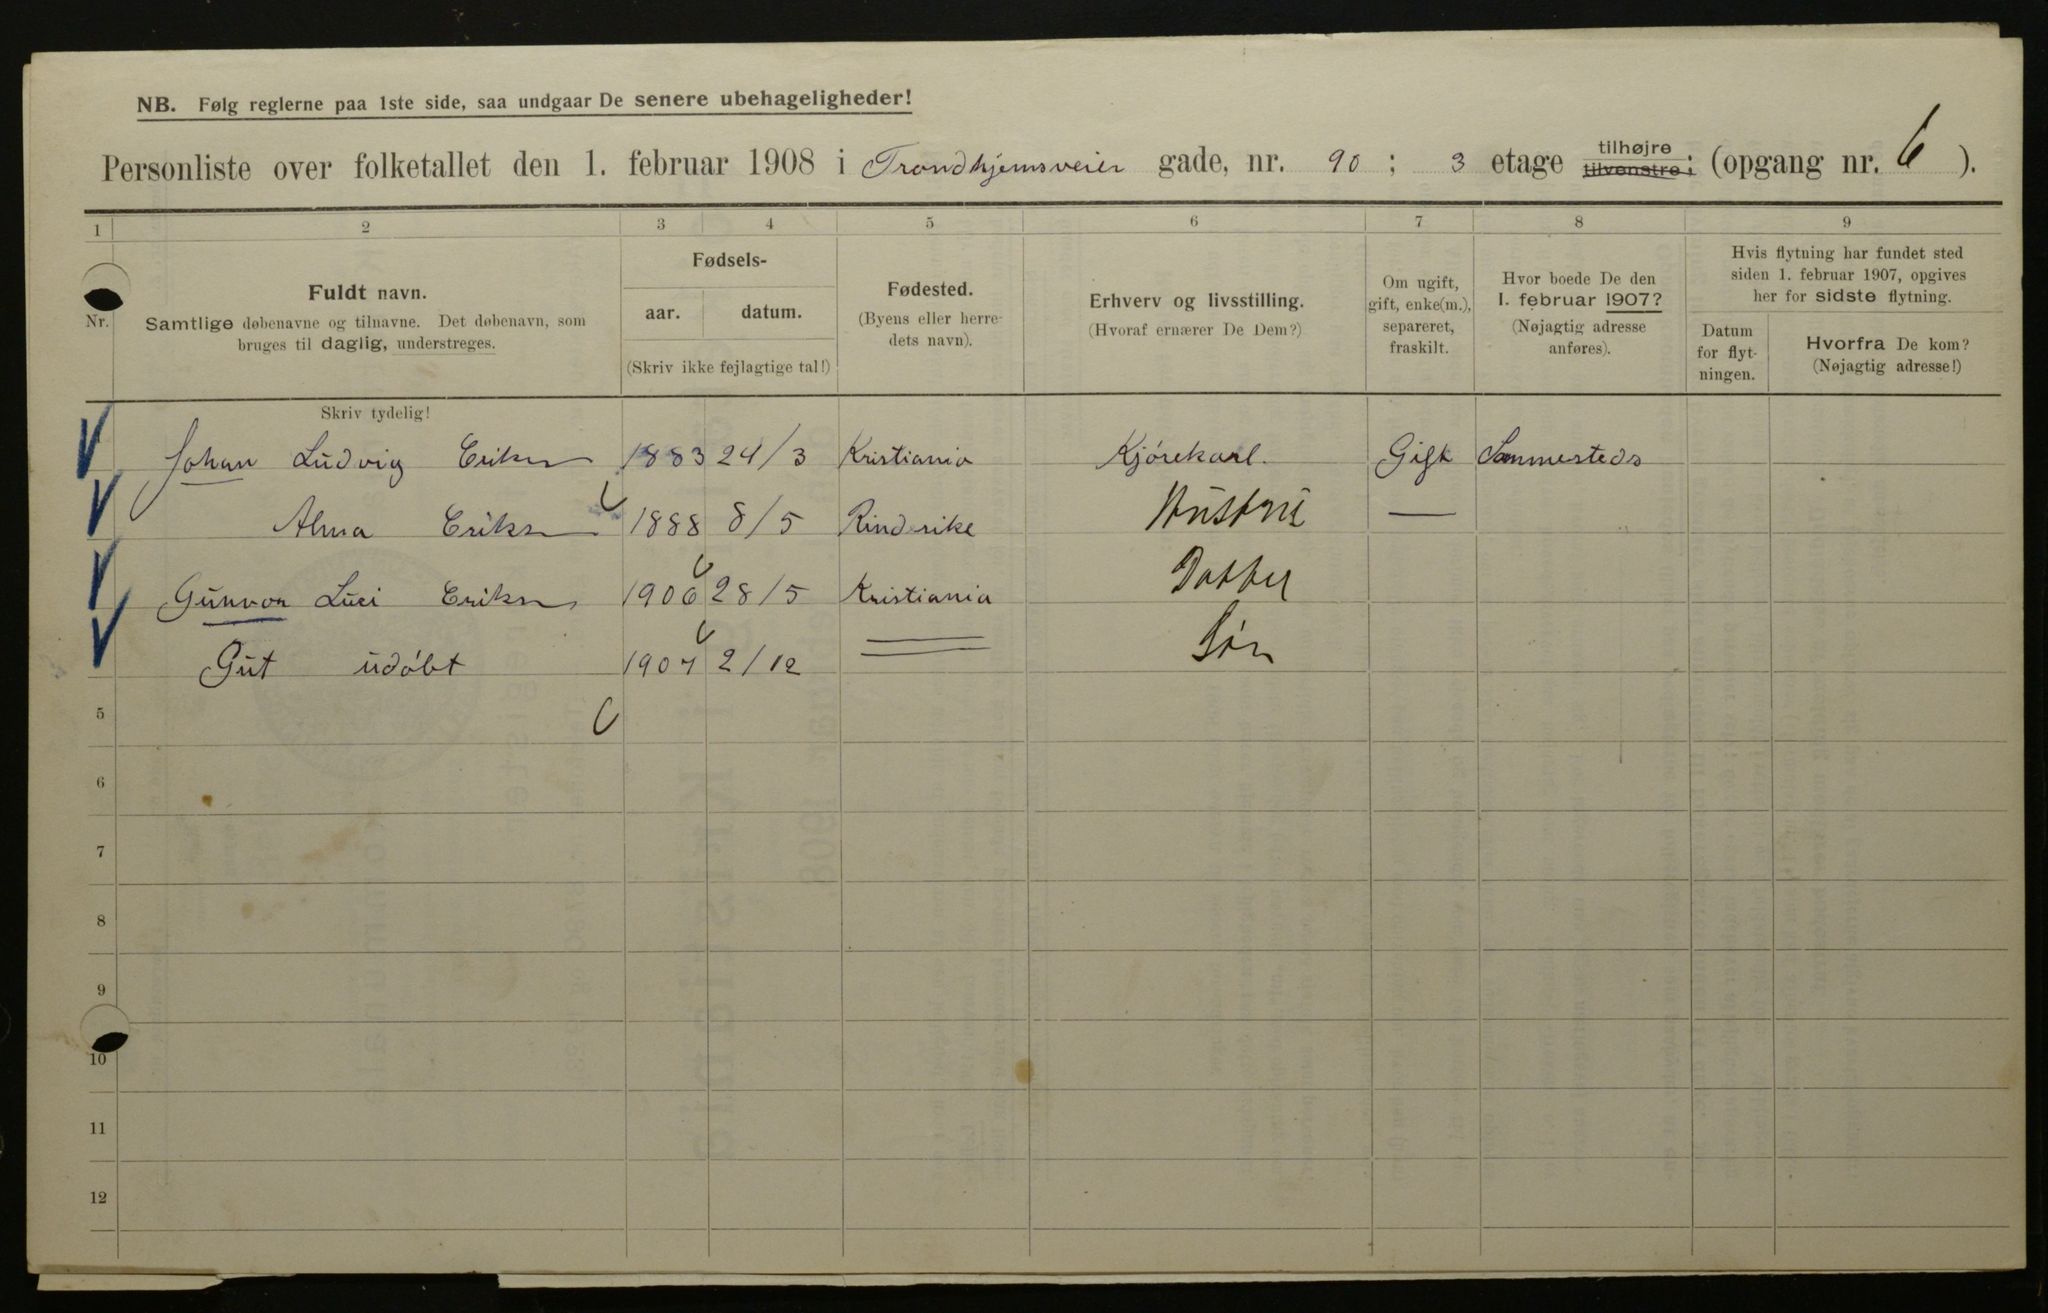 NB. Følg reglerne paa 1ste side, saa undgaar De senere ubehageligheder!
Personliste over folketallet den 1. februar 1908 i Trondhjemsveien gade, nr. 90; 3 etage tilhøjre tilvenstre; (opgang nr. 6).
1 2 3 4 5 6 7 8 9
Nr.
Fuldt navn.
Samtlige døbenavne og tilnavne. Det døbenavn, som
bruges til daglig, understreges.
Fødsels-
aar. datum.
(Skriv ikke fejlagtige tal!)
Fødested.
(Byens eller herre-
dets navn).
Erhverv og livsstilling.
(Hvoraf ernærer De Dem?)
Om ugift,
gift, enke(m.),
separeret,
fraskilt.
Hvor boede De den
1. februar 1907?
(Nøjagtig adresse
anføres).
Hvis flytning har fundet sted
siden 1. februar 1907, opgives
her for sidste flytning.
Datum
for flyt-
ningen.
Hvorfra De kom?
(Nøjagtig adresse!)
Skriv tydelig!
Johan Ludvig Eriksen 1883 24/3 Kristiania Kjørekarl. Gift Sammesteds
Alma Eriksen 1888 8/5 Hustru —
Gunvor Luci Eriksen 1906 28/5 Kristiania Datter
Gut udøbt 1907 2/12 Søn
5
6
7
8
9
10
11
12